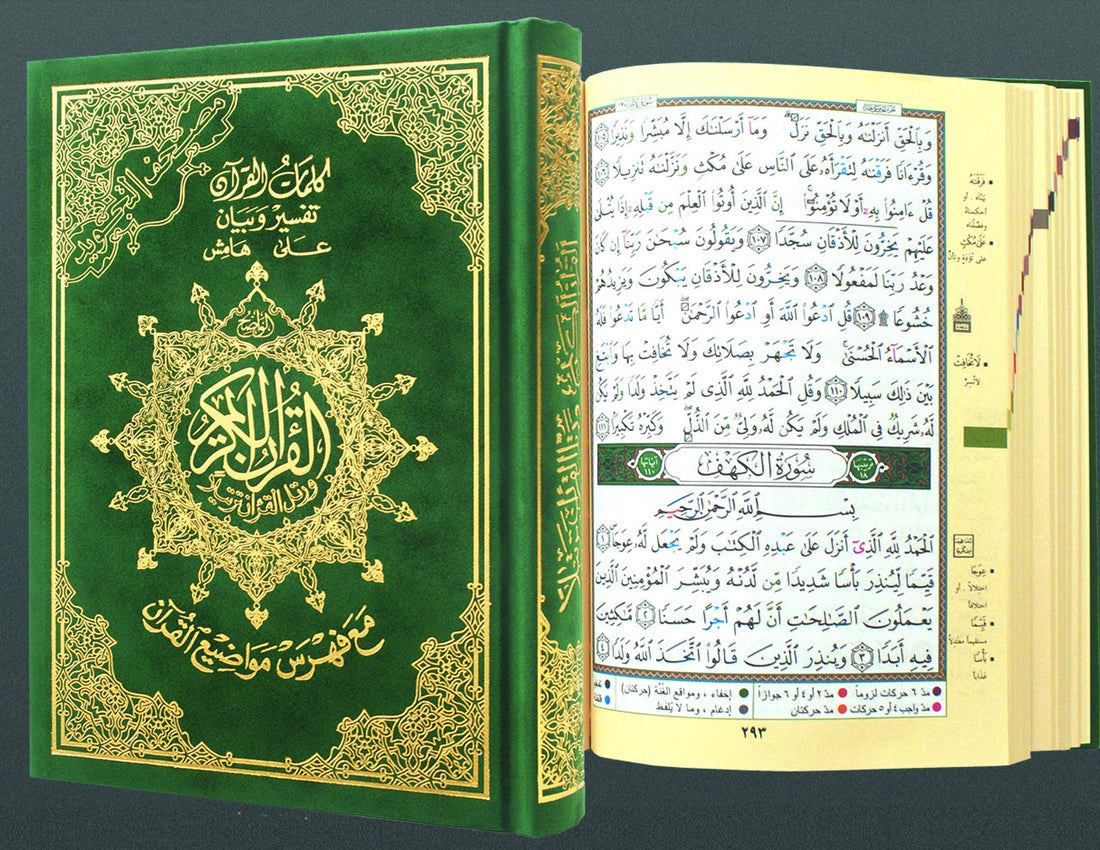 مصحف التجويد
كلمات القرآن
تفسير وبيان
على هامش
الواضح
القرآن الكريم
ورتل القرآن ترتيلا
مع فهرس مواضيع القرآن
وَبِالْحَقِّ أَنزَلْنَٰهُ وَبِالْحَقِّ نَزَلَ ۗ وَمَآ أَرْسَلْنَٰكَ إِلَّا مُبَشِّرًا وَنَذِيرًا ١٠٥
وَقُرْءَانًا فَرَقْنَٰهُ لِتَقْرَأَهُۥ عَلَى النَّاسِ عَلَىٰ مُكْثٍ وَنَزَّلْنَٰهُ تَنزِيلًا ١٠٦
قُلْ ءَامِنُوا۟ بِهِۦٓ أَوْ لَا تُؤْمِنُوٓا۟ ۚ إِنَّ الَّذِينَ أُوتُوا۟ الْعِلْمَ مِن قَبْلِهِۦٓ إِذَا يُتْلَىٰ
عَلَيْهِمْ يَخِرُّونَ لِلْأَذْقَانِ سُجَّدًا ١٠٧ وَيَقُولُونَ سُبْحَٰنَ رَبِّنَآ إِن كَانَ
وَعْدُ رَبِّنَا لَمَفْعُولًا ١٠٨ وَيَخِرُّونَ لِلْأَذْقَانِ يَبْكُونَ وَيَزِيدُهُمْ
خُشُوعًا ۩ ١٠٩ قُلِ ادْعُوا۟ اللَّهَ أَوِ ادْعُوا۟ الرَّحْمَٰنَ ۖ أَيًّا مَّا تَدْعُوا۟ فَلَهُ
الْأَسْمَآءُ الْحُسْنَىٰ ۚ وَلَا تَجْهَرْ بِصَلَاتِكَ وَلَا تُخَافِتْ بِهَا وَابْتَغِ
بَيْنَ ذَٰلِكَ سَبِيلًا ١١٠ وَقُلِ الْحَمْدُ لِلَّهِ الَّذِى لَمْ يَتَّخِذْ وَلَدًا وَلَمْ يَكُن
لَّهُۥ شَرِيكٌ فِى الْمُلْكِ وَلَمْ يَكُن لَّهُۥ وَلِىٌّ مِّنَ الذُّلِّ ۖ وَكَبِّرْهُ تَكْبِيرًا ١١١
ترتيبها ١٨ سُورَةُ الكَهْفِ آياتها ١١٠
بِسْمِ اللَّهِ الرَّحْمَٰنِ الرَّحِيمِ
الْحَمْدُ لِلَّهِ الَّذِىٓ أَنزَلَ عَلَىٰ عَبْدِهِ الْكِتَٰبَ وَلَمْ يَجْعَل لَّهُۥ عِوَجًا ۜ ١
قَيِّمًا لِّيُنذِرَ بَأْسًا شَدِيدًا مِّن لَّدُنْهُ وَيُبَشِّرَ الْمُؤْمِنِينَ الَّذِينَ
يَعْمَلُونَ الصَّٰلِحَٰتِ أَنَّ لَهُمْ أَجْرًا حَسَنًا ٢ مَّٰكِثِينَ
فِيهِ أَبَدًا ٣ وَيُنذِرَ الَّذِينَ قَالُوا۟ اتَّخَذَ اللَّهُ وَلَدًا ٤
فَرَقْنَاهُ
بيّناه ، أو
أحكمناه
وفصّلناه
عَلَى مُكْثٍ
على تُؤَدَةٍ وتأنٍّ
لَا تُخَافِتْ
لا تُسِرَّ
عِوَجًا
اختلالاً ، أو
اختلافاً
قَيِّمًا
مستقيماً معتدلاً
بَأْسًا
عَذاباً
مدّ ٦ حركات لزوماً مدّ ٢ أو ٤ أو ٦ جوازاً إخفاء ، ومواقع الغُنَّة (حركتان)
مدّ واجب ٤ أو ٥ حركات مدّ حركتان إدغام ، وما لا يُلفَظ
٢٩٣